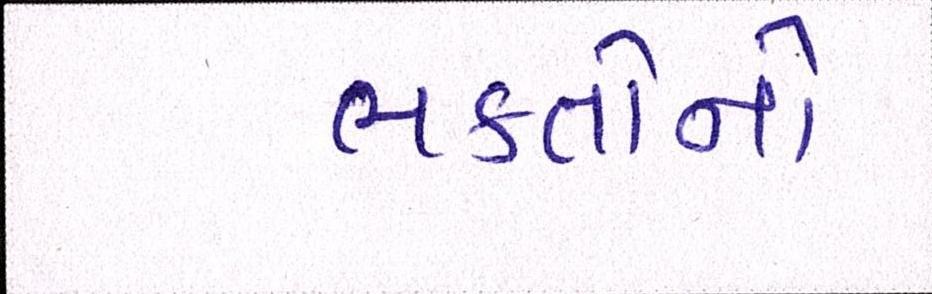 ભકતોનો